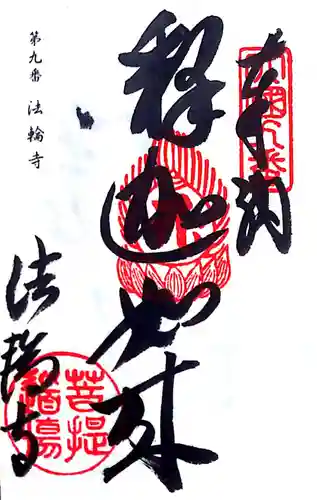 奉納
釋迦如来
法輪寺
第九番 法輪寺
菩提
道場